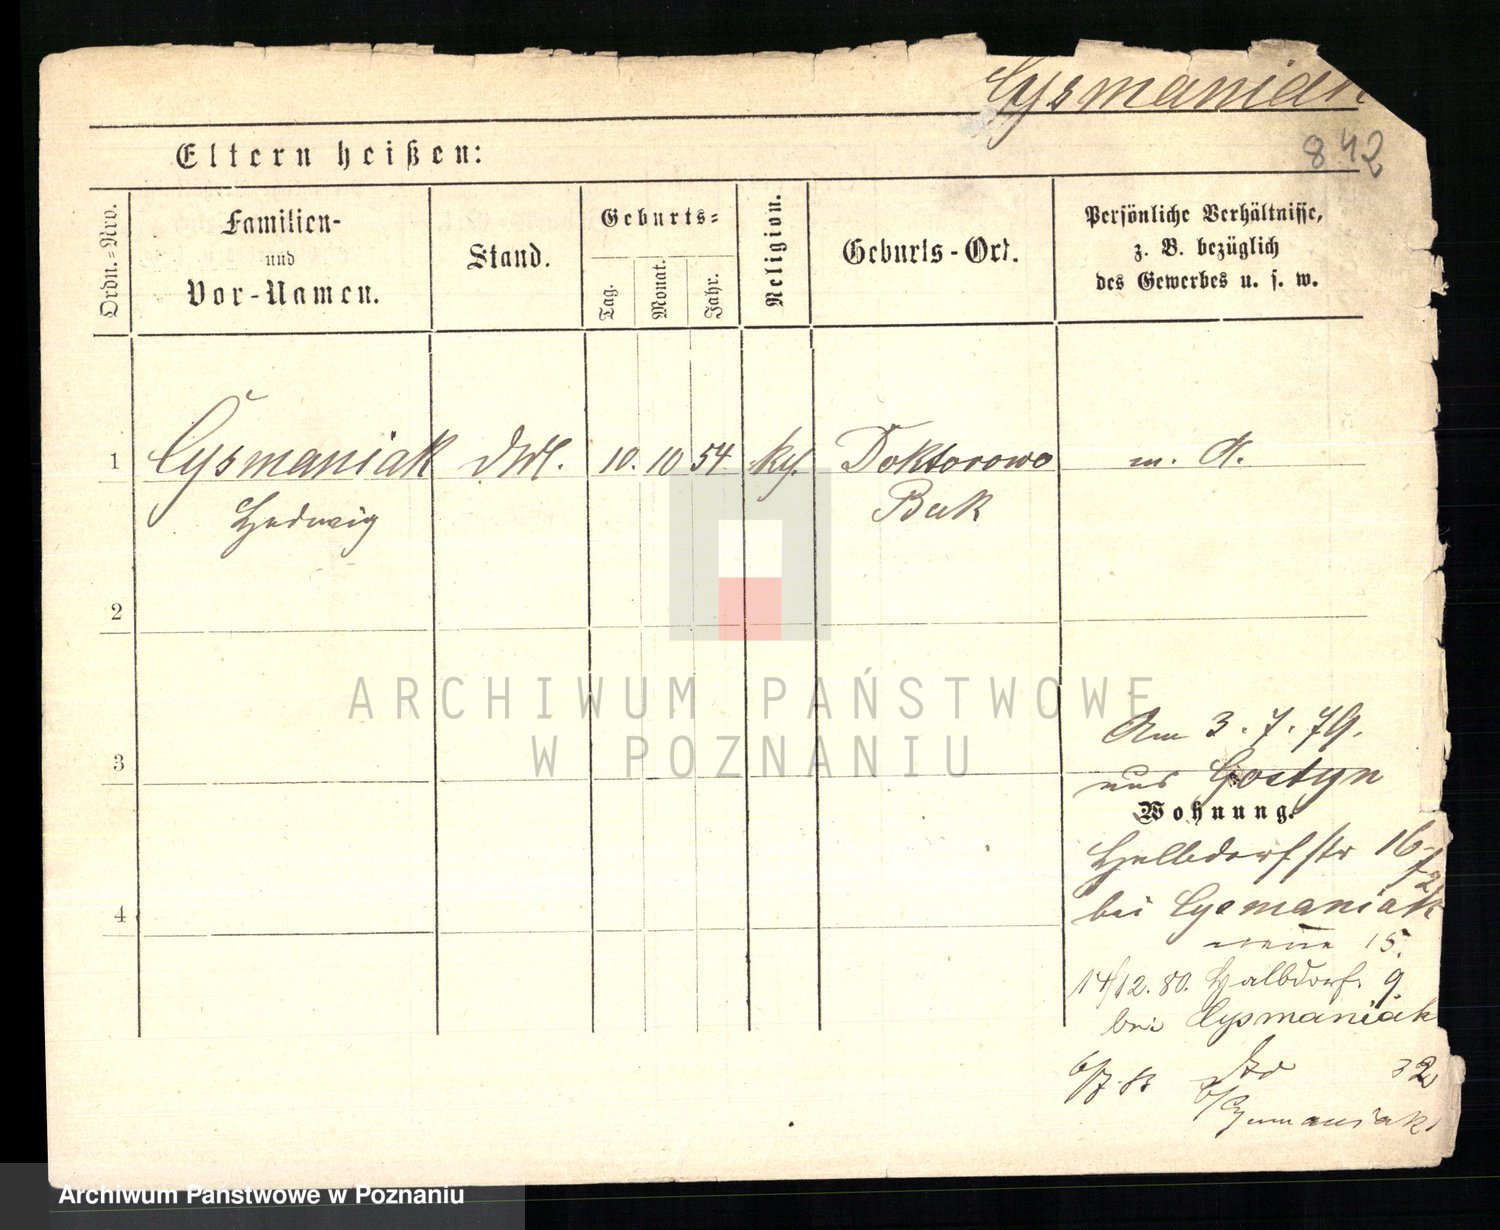 Cysmaniak
842
Eltern heißen:
Ordn.=Nro.
Familien-
und
Vor-Namen.
Stand.
Geburts=
Tag.
Monat.
Jahr.
Religion.
Geburts-Ort.
Persönliche Verhältnisse,
z. B. bezüglich
des Gewerbes u. s. w.
1 Cysmaniak 10. 10 54. Doktorowo m. A.
Hedwig Buk
2
ARCHIWUM PAŃSTWOWE
W POZNANIU
Am 3. 7. 79.
3 aus Gostyn
Wohnung.
Halbdorfstr 16
4 bei Cysmaniak
15.
14/12. 80. Halbdorf. 9
bei Cysmaniak
6/7 83 32
b/Cysmaniak
Archiwum Państwowe w Poznaniu